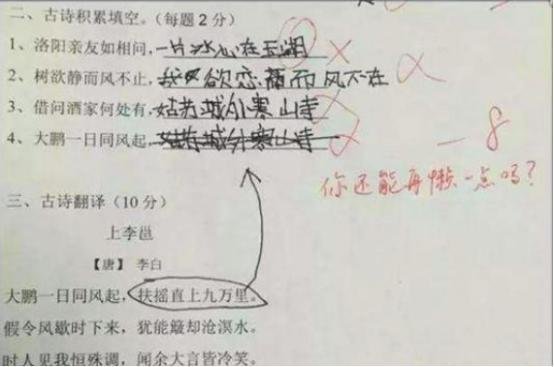 二、古诗积累填空。(每题2分)
1、洛阳亲友如相问,一片冰心在玉湖
2、树欲静而风不止,我欲恋而风不在
3、借问酒家何处有,姑苏城外寒山寺
4、大鹏一日同风起,姑苏城外寒山寺
-8
你还能再懒一点吗?
三、古诗翻译(10分)
上李邕
【唐】李白
大鹏一日同风起,扶摇直上九万里。
假令风歇时下来,犹能簸却沧溟水。
时人见我恒殊调,闻余大言皆冷笑。